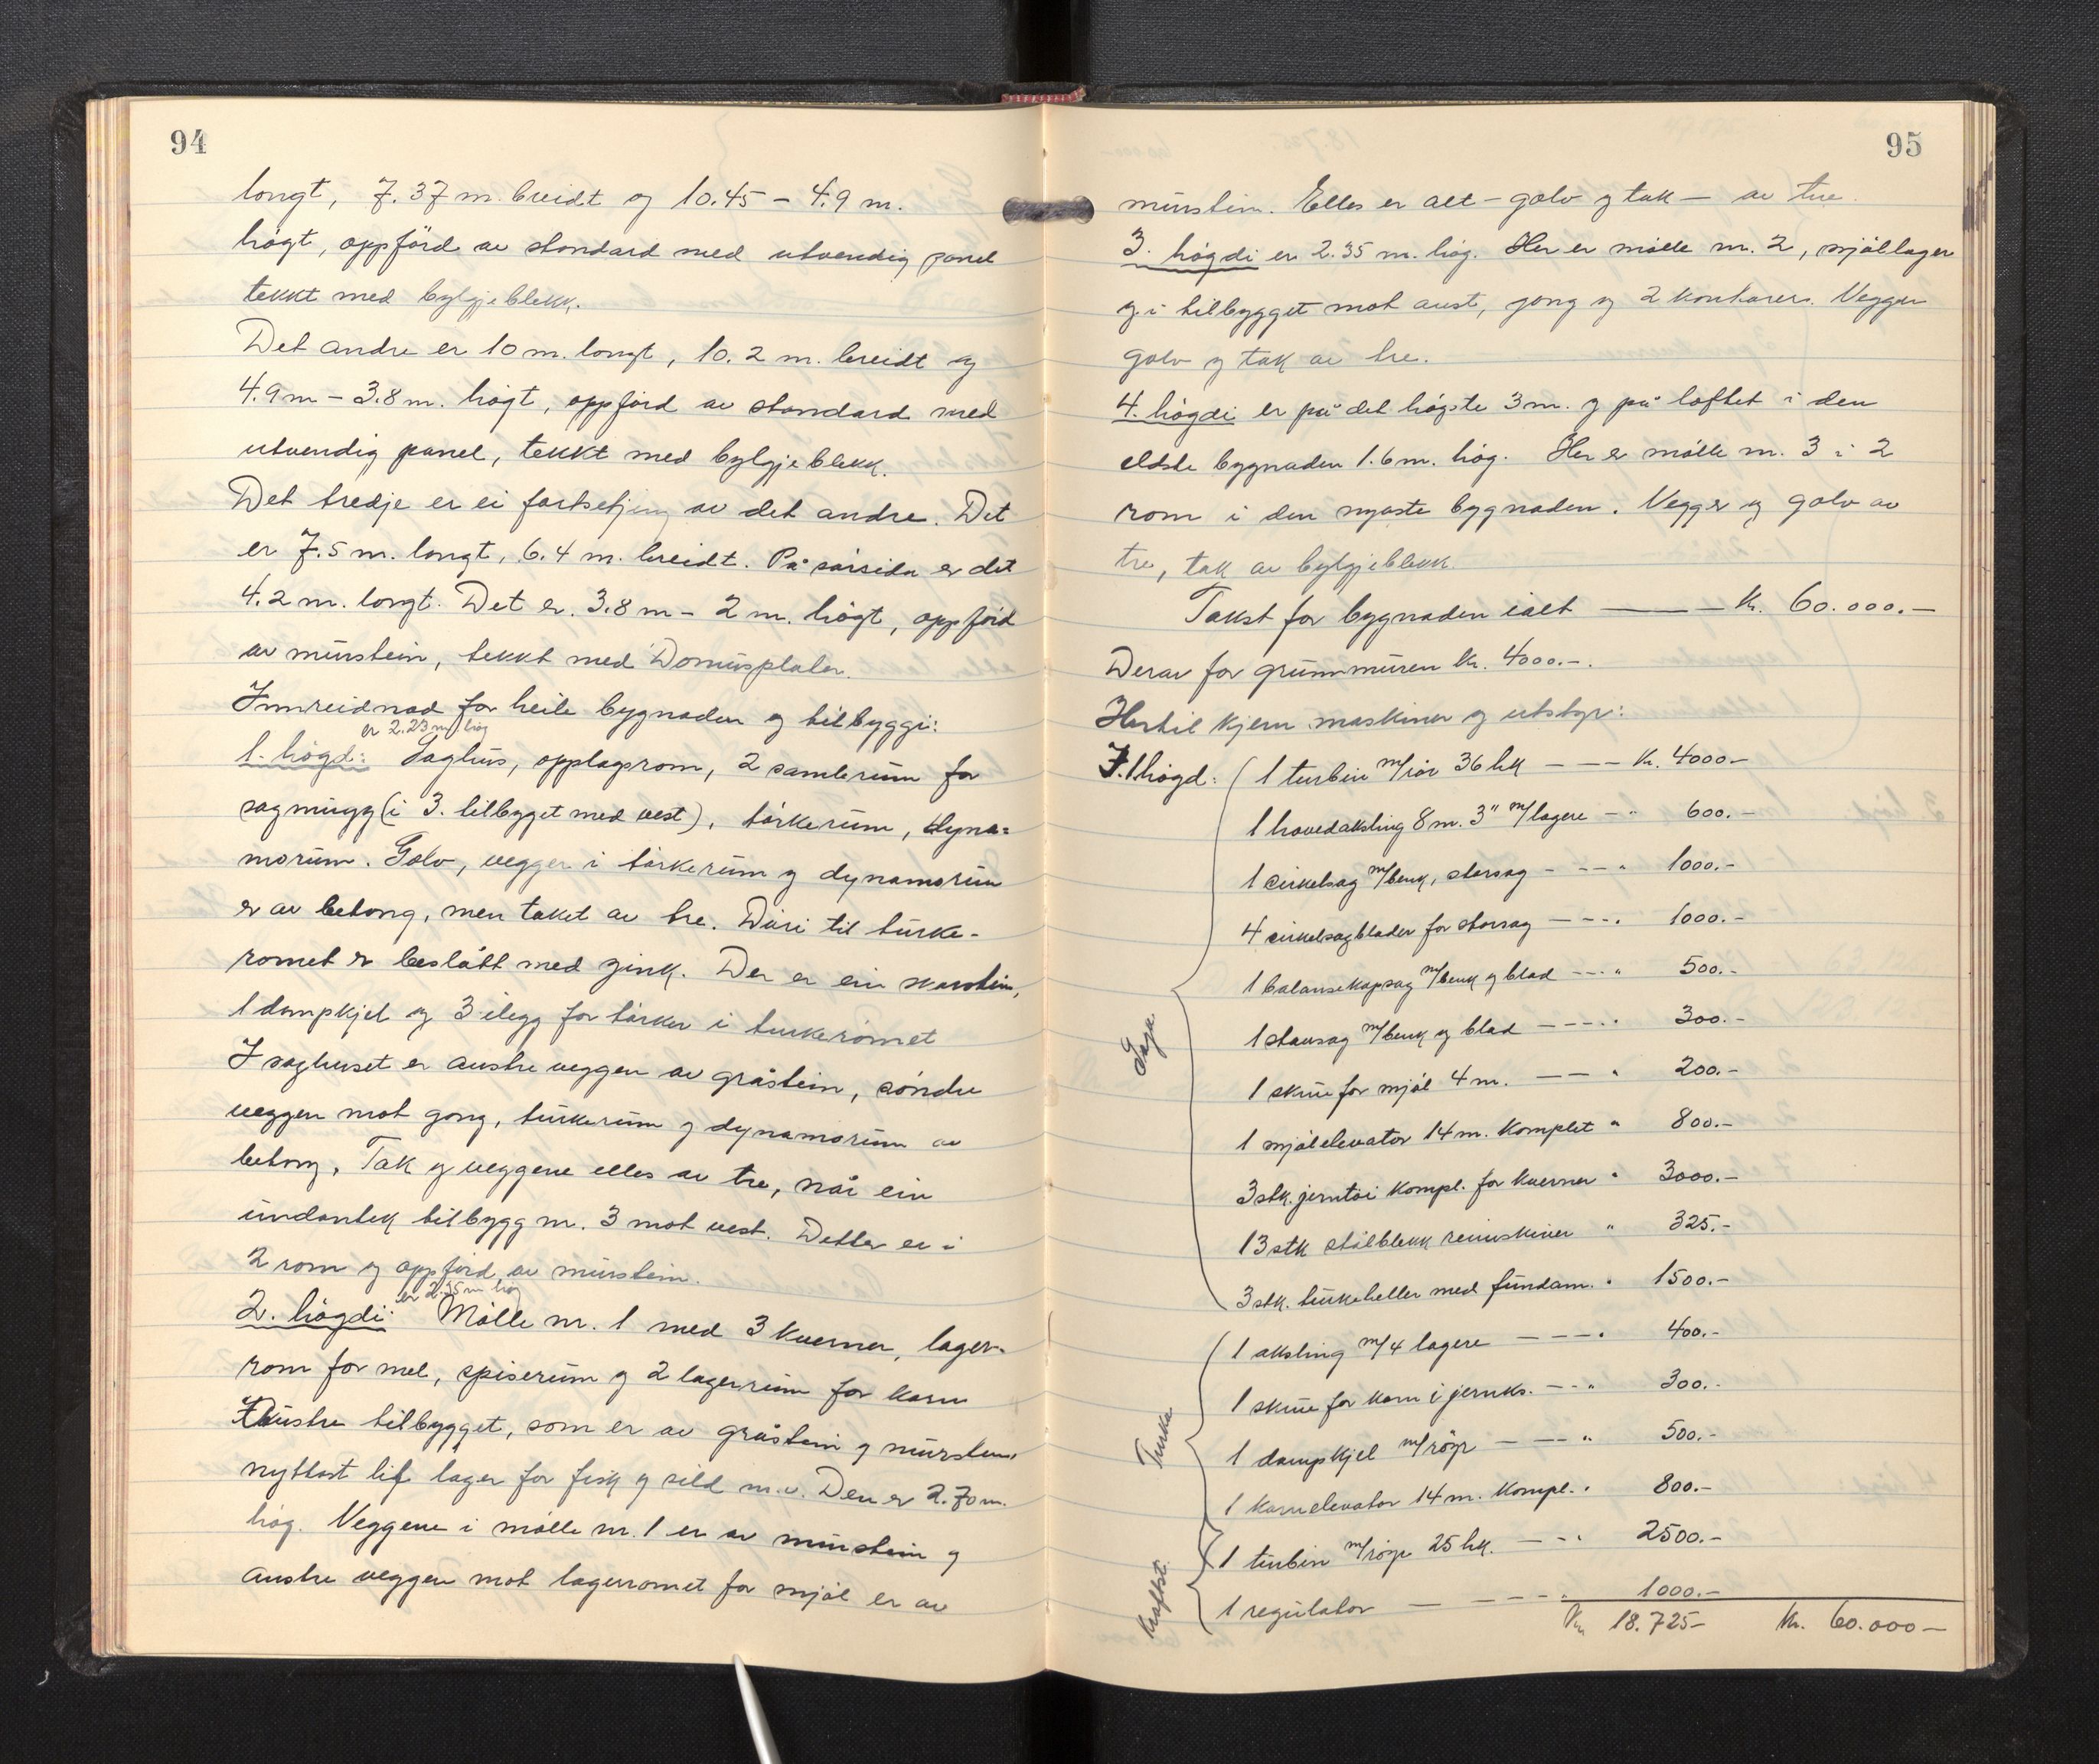 94
longt, 7.37 m. breidt og 10.45 - 4.9 m.
högt, oppförd av standard med utvendig panel
tekkt med bylgjeblekk.
Det andre er 10 m. longt, 10.2 m. breidt og
4.9 m - 3.8 m. högt, oppförd av standard med
utvendig panel, tekkt med bylgjeblekk.
Det tredje er ei fortsetjing av det andre. Det
er 7.5 m. longt, 6.4 m. breidt. På sörsida er det
4.2 m. longt. Det er 3.8 m - 2 m. högt, oppförd
av murstein, tekkt med Domusplater.
Innreidnad for heile bygnaden og tilbyggi:
er 2.23 m. hög
1. högd: Saghus, opplagsrom, 2 samlerum for
sagmugg (i 3. tilbygget med vest), törkerum, dyna=
morum. Golv, vegger i törkerum og dynamorum
er av betong, men taket av tre. Döri til turke-
romet er beslått med zink. Der er ein skorstein,
1 dampkjel og 3 ilegg for törker i turkeromet
I saghuset er austre veggen av gråstein, söndre
veggen mot gong, turkerum og dynamorum av
betong. Tak og veggene elles av tre, når ein
undantek tilbygg nr. 3 mot vest. Dette er i
2 rom og oppförd av murstein.
er 2.35 m hög
2. högdi: Mölle nr. 1 med 3 kverner, lager-
rom for mel, spiserum og 2 lagerrum for korn
Austre tilbygget, som er av gråstein og murstein,
nyttast til lager for fisk og sild m.v. Den er 2.70 m.
hög. Veggene i mölle nr. 1 er av murstein og
austre veggen mot lagerromet for mjöl er av
95
murstein. Elles er alt - golv og tak - av tre.
3. högdi er 2.35 m. hög. Her er mölle nr. 2, mjöllager
og i tilbygget mot aust, gong og 2 kontorer. Vegger
golv og tak av tre.
4. högdi er på det högste 3 m. og på loftet i den
eldste bygnaden 1.6 m. hög. Her er mölle nr. 3 i 2
rom i den nyaste bygnaden. Vegger og golv av
tre, tak av bylgjeblekk.
Takst for bygnaden ialt — Kr. 60.000.-
Derav for grunnmuren kr. 4000.-.
Hertil kjem maskiner og utstyr:
I. 1 högd: 1 turbin m/rör 36 hk — Kr. 4000-
1 hovedaksling 8 m. 3" m/lagere - " 600.-
1 cirkelsag m/benk, storsag - - - " 1000.-
4 cirkelsagblader for storsag - - - " 1000.-
1 balansekapsag m/benk og blad - - - " 500.-
1 stavsag m/benk og blad - - - " 300.-
Saga
1 skrue for mjöl 4 m. - - " 200.-
1 mjölelevator 14 m. komplet " 800.-
3 stk. jerntöi kompl. for kverner " 3000.-
13 stk stålblekk reimskiver " 325.-
3 stk. turkeheller med fundam. " 1500.-
1 aksling m/4 lagere - - - " 400.-
1 skrue for korn i jernks. - - " 300.-
Turka
1 dampkjel m/röyr - - - " 500.-
1 kornelevator 14 m. kompl. " 800.-
1 turbin m/röyr 25 hk. - - " 2500.-
Kraftst.
1 regulator - - - - " 1000.-
Kr 18.725- Kr. 60.000-